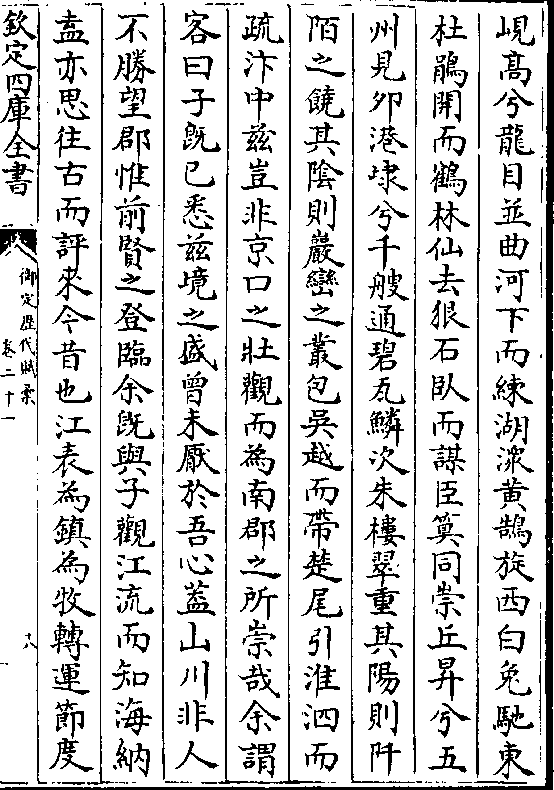 峴高兮龍目並曲河下而練湖深黄鵠旋西白兎馳東
杜鵑開而鶴林仙去狠石臥而謀臣䇿同崇丘昇兮五
州見夘港埭兮千艘通碧瓦鱗次朱樓翠重其陽則阡
陌之饒其陰則巖巒之叢包吳越而帶楚尾引淮泗而
疏汴中兹豈非京口之壯觀而為南郡之所崇哉余謂
客曰子既已悉兹境之盛曽未厭於吾心盖山川非人
不勝望郡惟前賢之登臨余既與子觀江流而知海納
盍亦思往古而評來今昔也江表為鎮為牧轉運節度
欽定四庫全書
御定歴代賦彙
卷二十一
八